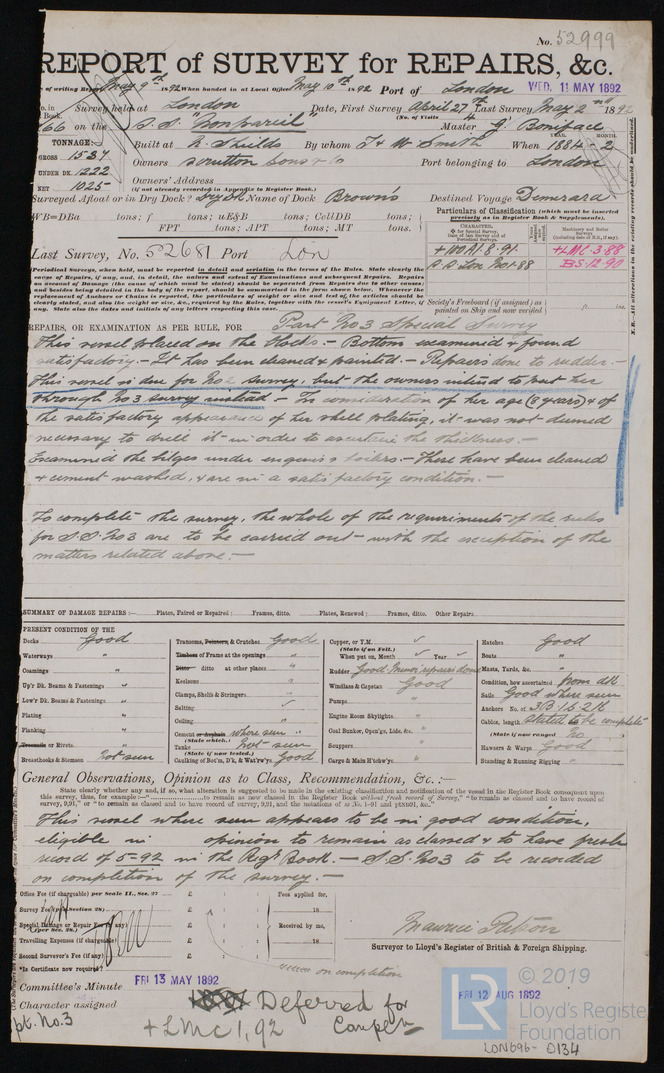 No. 52999
REPORT of SURVEY for REPAIRS, &c.
of writing Report May 9th 1892 When handed in at Local Office May 10th 1892 Port of London WED. 11 MAY 1892
No. in Survey held at London Date, First Survey April 27th Last Survey May 2nd 1892
Book. (No. of Visits 4
166 on the S.S. "Nonpareil" Master G. Boniface
TONNAGE: Built at N. Shields By whom T & W Smith When 1884 - 2
YEAR. MONTH.
GROSS 1534 Owners Scrutton Sons & Co Port belonging to London
UNDER DK. 1222 Owners' Address
NET 1025 (if not already recorded in Appendix to Register Book.)
Surveyed Afloat or in Dry Dock? Dry Dk Name of Dock Brown's Destined Voyage Demerara
WB=DBa tons; f tons; uE&B tons; CellDB tons;
FPT tons; APT tons; MT tons.
Particulars of Classification (which must be inserted
precisely as in Register Book & Supplements).
CHARACTER,
+100A1 8.91
S.S. Lon No1-88
+LMC 3.88
BS 12.90
Last Survey, No. 52681 Port Lon
Society's Freeboard (if assigned) as
painted on Ship and now verified ft. ins.
Periodical Surveys, when held, must be reported in detail and seriatim in the terms of the Rules. State clearly the
causes of Repairs, if any, and, in detail, the nature and extent of Examinations and subsequent Repairs. Repairs
on account of Damage (the cause of which must be stated) should be separated from Repairs due to other causes;
and besides being detailed in the body of the report, should be summarised in the form shown below. Whenever the
replacement of Anchors or Chains is reported, the particulars of weight or size and test of the articles should be
clearly stated, and also the weight or size, &c., required by the Rules, together with the vessel's Equipment Letter, if
any. State also the dates and initials of any letters respecting this case.
N.B.—All alterations in the existing records should be underlined.
REPAIRS, OR EXAMINATION AS PER RULE, FOR Part No 3 Special Survey
This vessel placed on the blocks. - Bottom examined & found
satisfactory. - It has been cleaned & painted. - Repairs done to rudder. -
This vessel is due for No 2 survey, but the owners intend to put her
through No 3 survey instead - In consideration of her age (8 years) & of
the satisfactory appearance of her shell plating, it was not deemed
necessary to drill it in order to ascertain the thickness. -
Examined the bilges under engines & boilers. - These have been cleaned
& cement washed, & are in a satisfactory condition. -
To complete the survey, the whole of the requirements of the rules
for S.S. No 3 are to be carried out - with the exception of the
matters related above. -
SUMMARY OF DAMAGE REPAIRS:— Plates, Faired or Repaired; Frames, ditto. Plates, Renewed; Frames, ditto. Other Repairs
PRESENT CONDITION OF THE
Decks Good
Waterways "
Coamings "
Up'r Dk. Beams & Fastenings "
Low'r Dk. Beams & Fastenings "
Plating "
Planking "
Treenails or Rivets "
Breasthooks & Stemson Not seen
Transoms, Pointers, & Crutches Good
Timbers of Frames at the openings "
Ditto ditto at other places "
Keelsons "
Clamps, Shelfs & Stringers "
Salting
Ceiling "
Cement or Asphalt where seen "
(State which.)
Tanks Not seen
(State if now tested.)
Caulking of Bot'm, D'k, & Wat'rw'ys Good
Copper, or Y.M.
(State if on Felt.)
When put on, Month Year
Rudder Good Minor repairs done
Windlass & Capstan Good
Pumps "
Engine Room Skylights "
Coal Bunker, Open'gs, Lids, &c. "
Scuppers "
Cargo & Main H'tchw'ys "
Hatches Good
Boats "
Masts, Yards, &c. "
Condition, how ascertained from dk
Sails Good where seen
Anchors No. of 3B 1S 2K
Cables, length stated to be complete
(State if now ranged) No
Hawsers & Warps Good
Standing & Running Rigging "
General Observations, Opinion as to Class, Recommendation, &c.:—
State clearly whether any, and if so, what alteration is suggested to be made in the existing classification and notification of the vessel in the Register Book consequent upon
this survey, thus, for example:—" to remain as now classed in the Register Book without fresh record of Survey," "to remain as classed and to have record of
survey, 9,91," or "to remain as classed and to have record of survey, 9,91, and the notations of ss No. 1-91 and ptNB91, &c."
This vessel where seen appears to be in good condition,
eligible in opinion to remain as classed & to have fresh
record of 5-92 in the Regr Book. - S.S. No 3 to be recorded
on completion of the survey. -
Office Fee (if chargeable) per Scale II., Sec. 27 £ : : Fees applied for,
Survey Fee (per Section 28) £ : : 18
Special Damage or Repair Fee (if any) £ : : Received by me,
(per Sec. 28.)
Travelling Expenses (if chargeable) £ : : 18
Second Surveyor's Fee (if any) £ : :
Surveyor to Lloyd's Register of British & Foreign Shipping.
*Is Certificate now required? on completion
Committee's Minute FRI 13 MAY 1892 FRI 12 AUG 1892
Character assigned Deferred for
pt. No. 3 +LMC 1,92
© 2019
LR Lloyd's Register
Foundation
LON696-0134